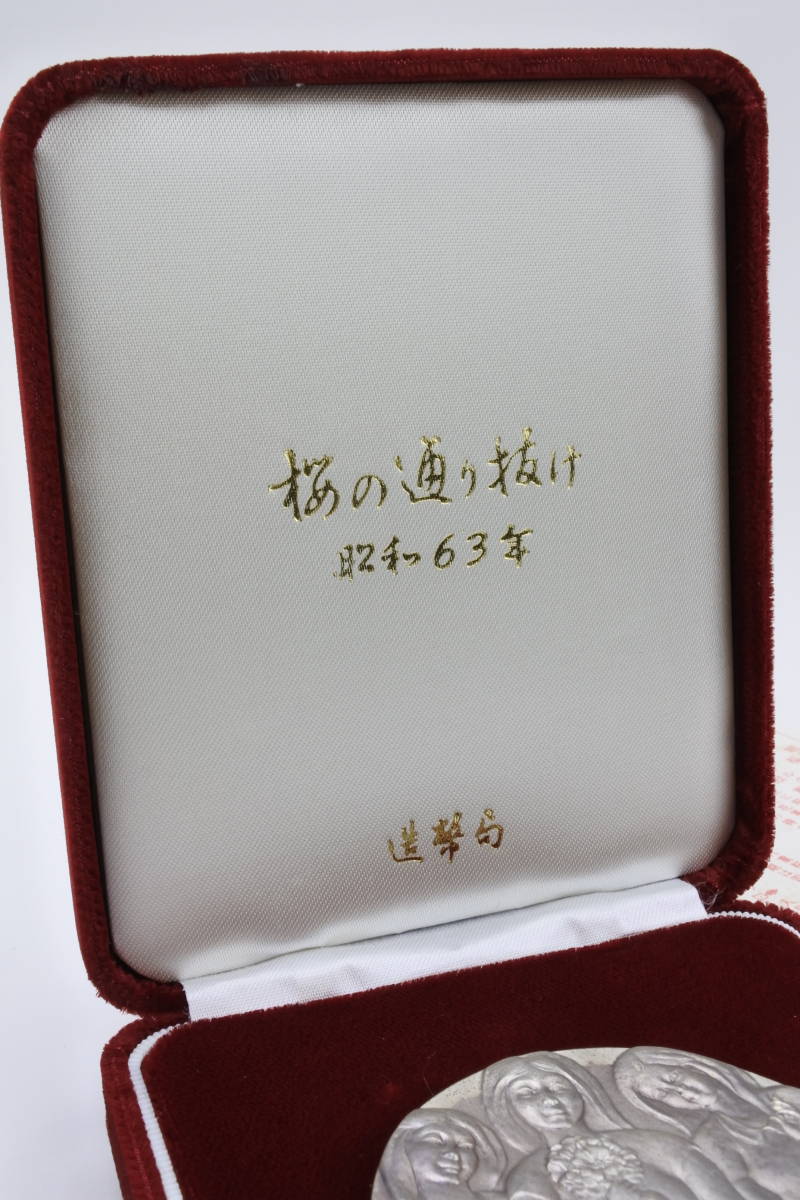 桜の通り抜け
昭和63年
造幣局